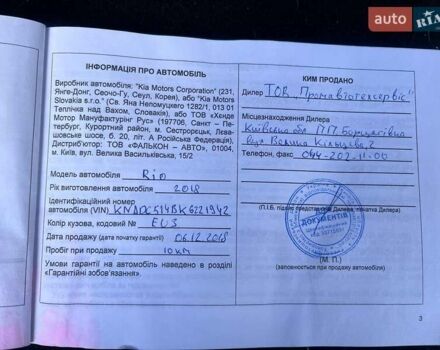 auto RIA
ІНФОРМАЦІЯ ПРО АВТОМОБІЛЬ
Виробник автомобіля: "Kia Motors Corporation" (231,
Янге-Донг, Сеочо-Гу, Сеул, Корея), або "Kia Motors
Slovakia s.r.o." (Св. Яна Непомуцкего 1282/1, 013 01
Теплічка над Вахом, Словакія), або ТОВ «Хенде
Мотор Мануфактурінг Рус» (197706, Санкт – Пе-
тербург, Курортний район, м. Сестрорецьк, Лєва-
шовське шосе, б. 20, літ. А Російська Федерація),
Дистриб'ютор: ТОВ «ФАЛЬКОН – АВТО», 01004,
м. Київ, вул. Велика Васильківська, 15/2
Модель автомобіля Rio
Рік виготовлення автомобіля 2018
Ідентифікаційний номер
автомобіля (VIN) KNADC514BK6221942
Колір кузова, кодовий № EU3
Дата продажу (дата початку гарантії) 06.12.2018
Пробіг при продажу 10 км
Умови гарантії на автомобіль наведено в розділі
«Гарантійні зобов'язання».
КИМ ПРОДАНО
Дилер ТОВ „Промавтотехсервіс"
Місцезнаходження Дилера
Київська обл П.П. Борщагівка
вул Велика Кільцева, 2
Телефон, факс 044-202-11-00
(П.І.Б. підпис представника Дилера, печатка Дилера)
ДОКУМЕНТІВ
(М. П.)
(заповнюється при продажу автомобіля)
3